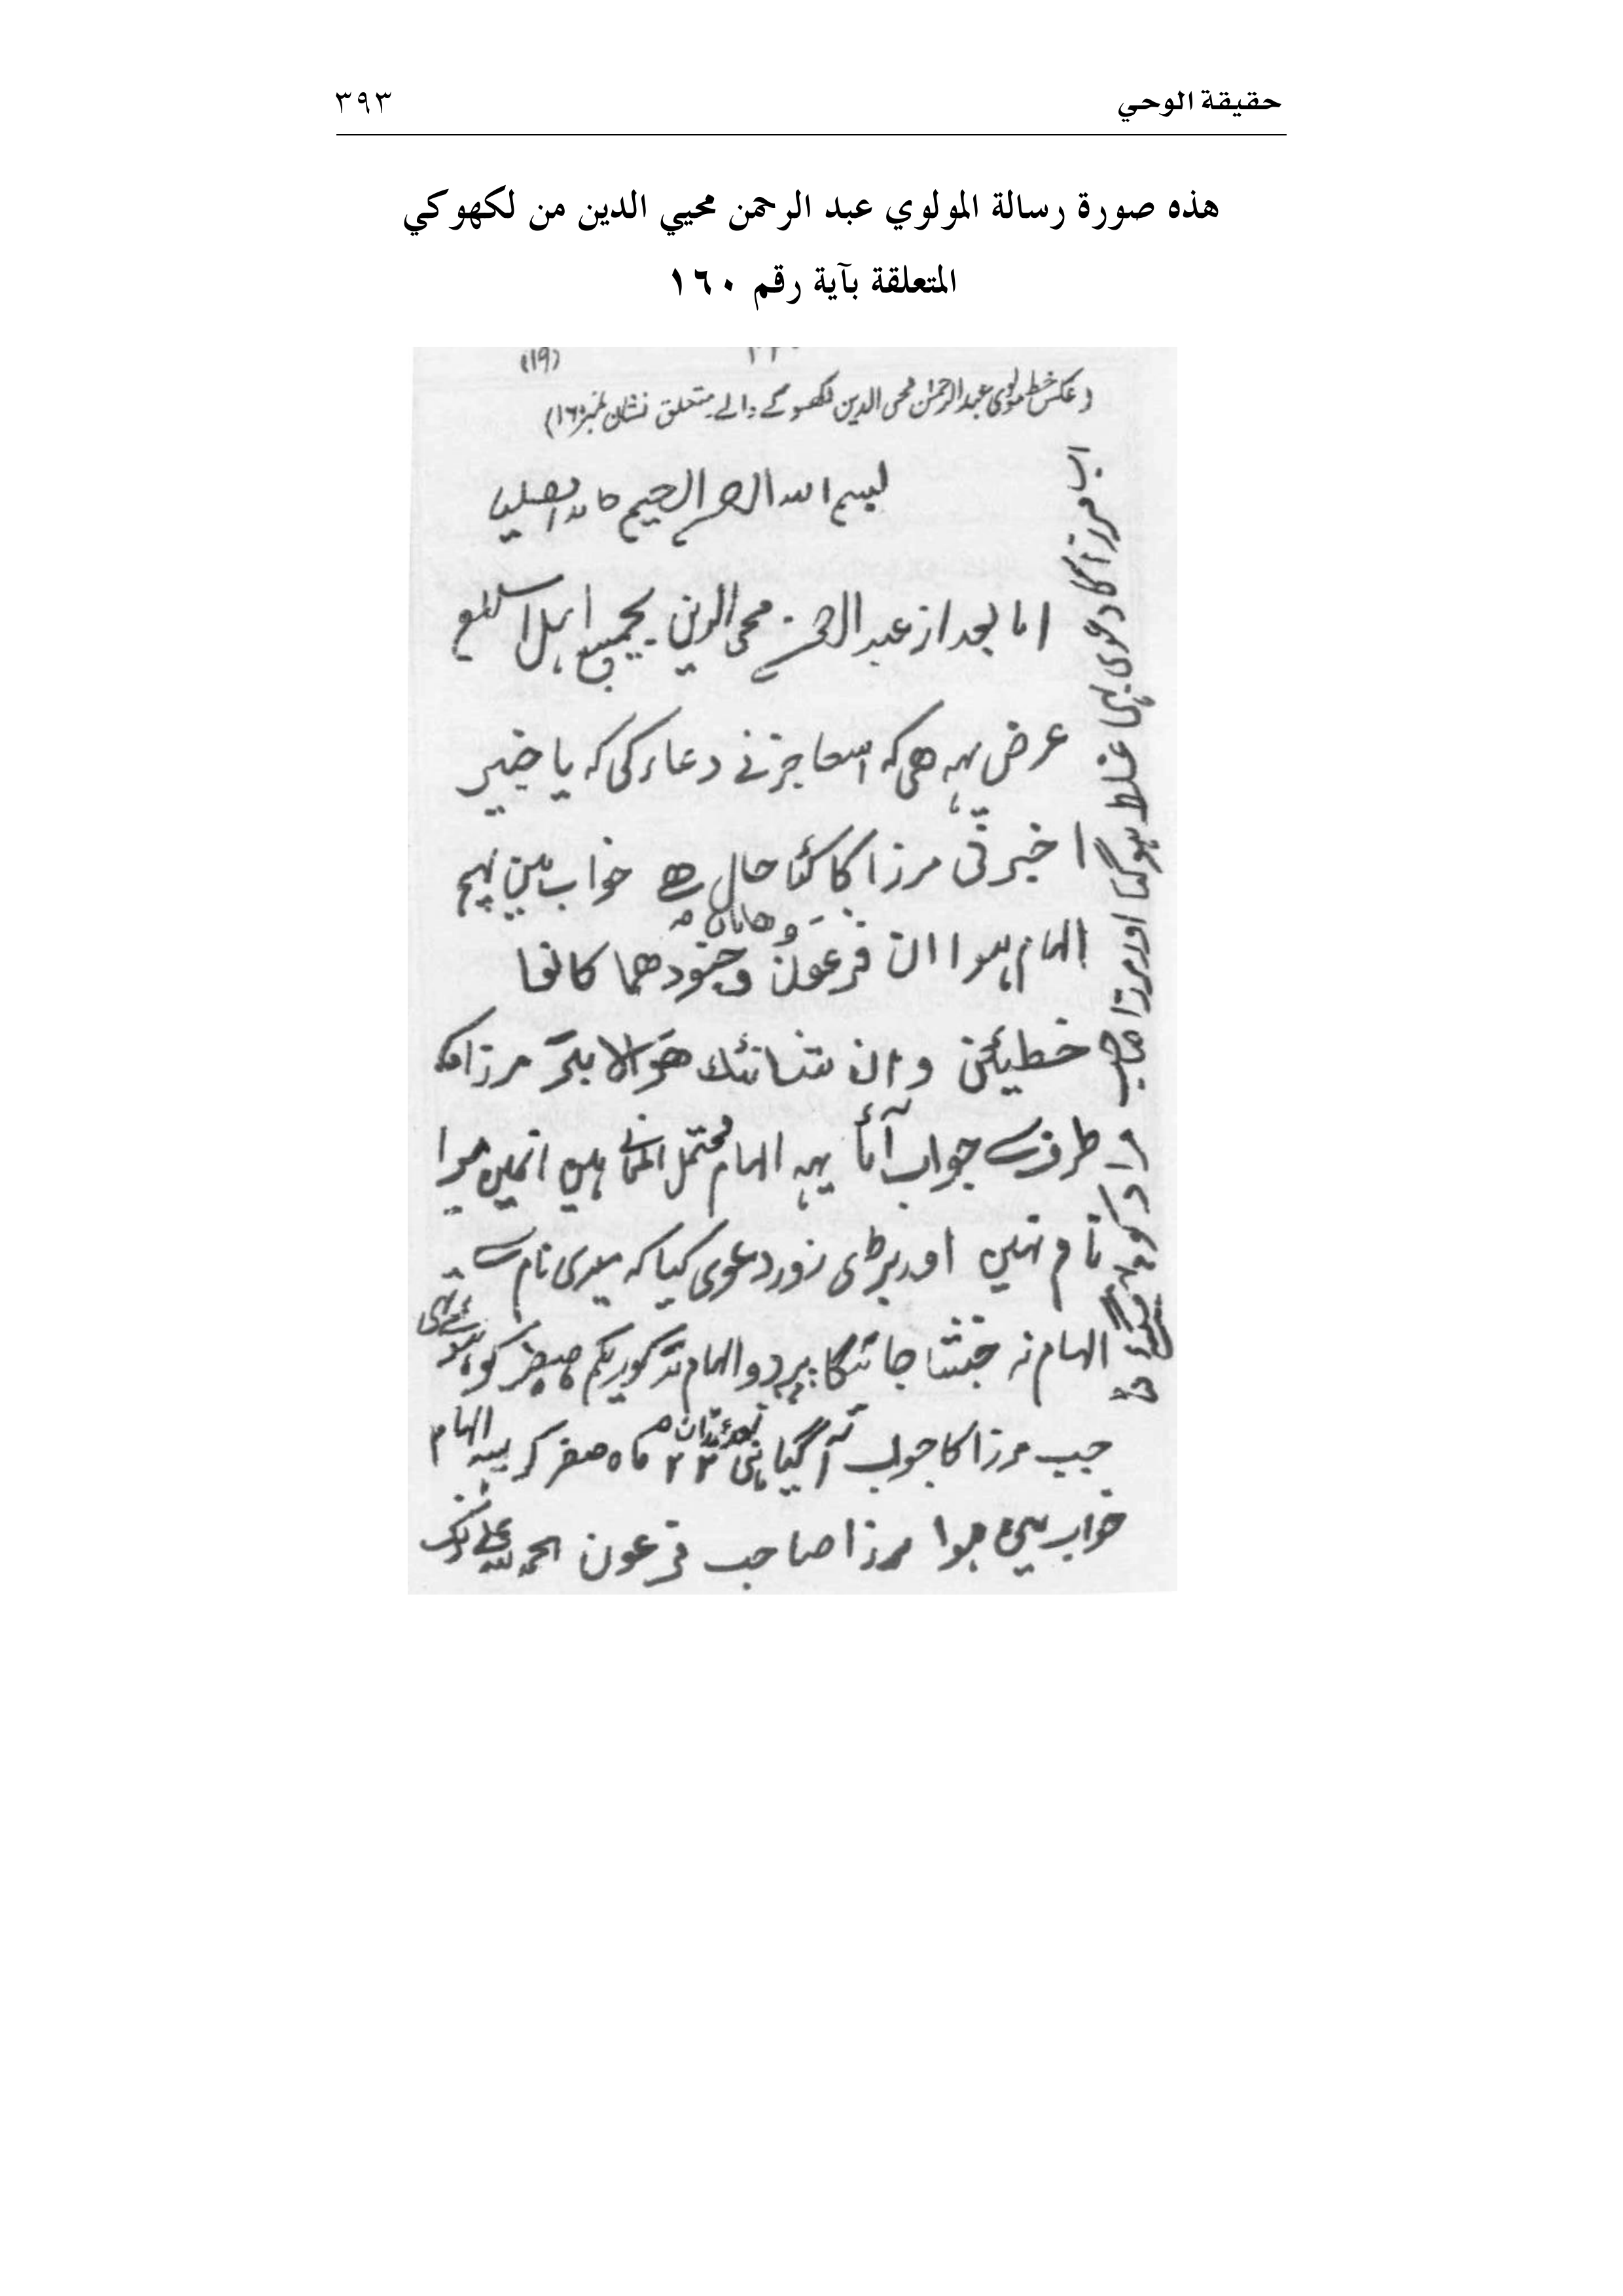 حقيقة الوحي ٣٩٣
هذه صورة رسالة المولوي عبد الرحمن محيي الدين من لكهوكي
المتعلقة بآية رقم ١٦٠
(19)
(عکس خط مولوی عبدالرحمٰن محی الدین لکھو کے والے متعلق نشان نمبر ۱۶۰)
بسم اللہ الرحمن الرحیم
اما بعد از عبد الرحمن محی الدین بجمیع اہل اسلام
عرض یہہ ھی کہ اسعاجز نے دعاء کی کہ یا خبیر
اخبرنی مرزا کا کیا حال ھے خواب مین یہہ
الہام ہوا ان فرعون وھامان وجنودھما کانوا
خطئین وان شانئك ھو الابتر مرزا کی
طرف سے جواب آیا یہہ الہام محتمل المعانی ہین انمین میرا
نام نہین اور بڑی زور دعوی کیا کہ میری نام سے
الہام نہ بخشا جائیگا یہ دو الہام مذکور یکم صفر کو ہوئے
جب مرزا کا جواب آگیا ماہ صفر کو یہہ الہام
خواب مین ہوا مرزا صاحب فرعون الحمد للہ علی ذلک
اب مرزا کا دعوی بہی غلط ہوگیا اور مرزا صاحب